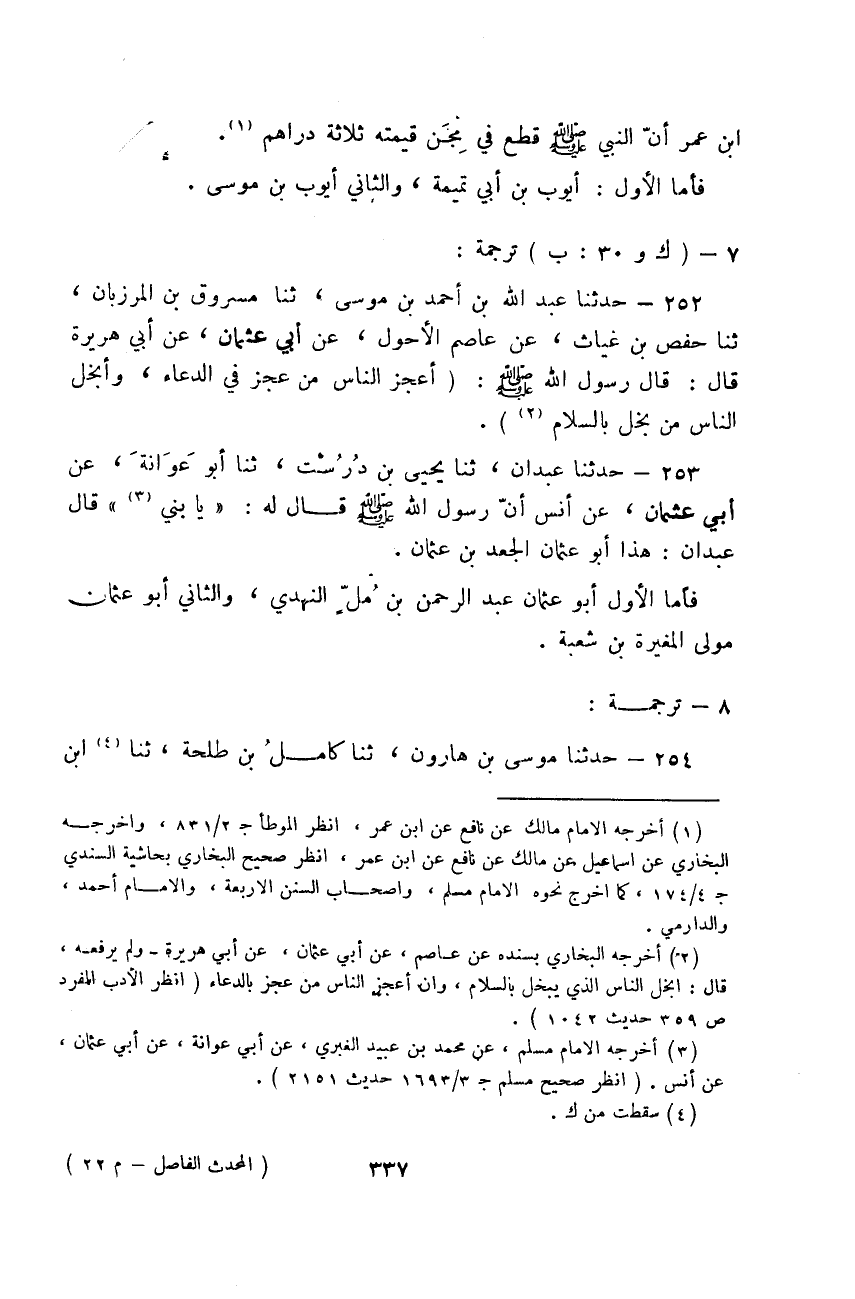 ابن عمر أنّ النبي ﷺ قطع في مِجَن قيمته ثلاثة دراهم (١) .
فأما الأول : أيوب بن أبي تميمة ، والثاني أيوب بن موسى .
٧ – ( ك و ٣٠ : ب ) ترجمة :
٢٥٢ – حدثنا عبد الله بن أحمد بن موسى ، ثنا مسروق بن المرزبان ،
ثنا حفص بن غياث ، عن عاصم الأحول ، عن أبي عثمان ، عن أبي هريرة
قال : قال رسول الله ﷺ : ( أعجز الناس من عجز في الدعاء ، وأبخل
الناس من بخل بالسلام (٢) ) .
٢٥٣ – حدثنا عبدان ، ثنا يحيى بن دُرُسْت ، ثنا أبو عَوَانَة ، عن
أبي عثمان ، عن أنس أنّ رسول الله ﷺ قـــال له : « يا بني (٣) » قال
عبدان : هذا أبو عثمان الجعد بن عثمان .
فأما الأول أبو عثمان عبد الرحمن بن مُلّ النهدي ، والثاني أبو عثمان
مولى المغيرة بن شعبة .
٨ – ترجمـــة :
٢٥٤ – حدثنا موسى بن هارون ، ثنا كامــلُ بن طلحة ، ثنا (٤) ابن
(١) أخرجه الامام مالك عن نافع عن ابن عمر ، انظر الموطأ جـ ٨٣١/٢ ، واخرجـــه
البخاري عن اسماعيل عن مالك عن نافع عن ابن عمر ، انظر صحيح البخاري بحاشية السندي
جـ ١٧٤/٤ ، كما اخرج نحوه الامام مسلم ، واصحــاب السنن الاربعة ، والامــام أحمد ،
والدارمي .
(٢) أخرجه البخاري بسنده عن عـاصم ، عن أبي عثمان ، عن أبي هريرة - ولم يرفعـه ،
قال : ابخل الناس الذي يبخل بالسلام ، وان أعجز الناس من عجز بالدعاء ( انظر الأدب المفرد
ص ٣٥٩ حديث ١٠٤٢ ) .
(٣) أخرجه الامام مسلم ، عن محمد بن عبيد الغبري ، عن أبي عوانة ، عن أبي عثمان ،
عن أنس . ( انظر صحيح مسلم جـ ١٦٩٣/٣ حديث ٢١٥١ ) .
(٤) سقطت من ك .
٣٣٧
( المحدث الفاصل – م ٢٢ )